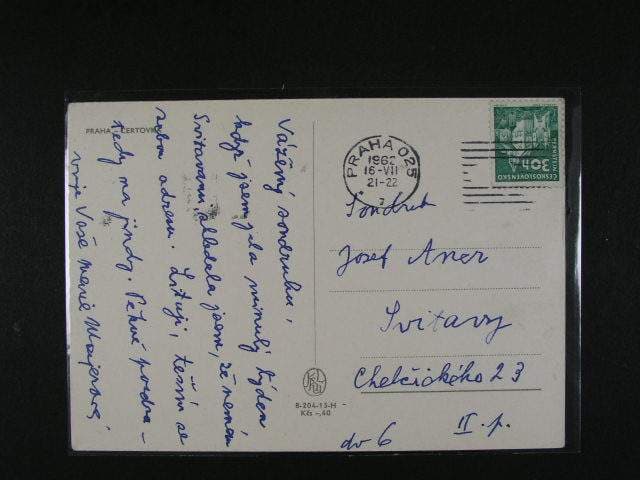 PRAHA - ČERTOVKA
Vážený soudruhu,
když jsem jela minulý týden
Svitavami shledala jsem, že nemám
sebou adresu. Lituji, těším se
tedy na jindy. Pěkné pozdra-
vuje Vaše Marie Majerová
PRAHA 025
1962
16-VII
21-22
7
30h
ČESKOSLOVENSKO
Soudruh
Josef Aner
Svitavy
Chelčického 23
II. p.
dv 6
8-204-13-H
Kčs -,40